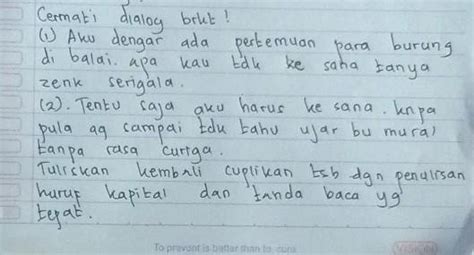 Cermati dialog brkt !
(1) Aku dengar ada pertemuan para burung
di balai. apa kau tdk ke sana tanya
zenk serigala.
(2). Tentu saja aku harus ke sana. knpa
pula aq sampai tdu tahu ujar bu mural
tanpa rasa curiga.
Tuliskan kembali cuplikan tsb dgn penulisan
huruf kapital dan tanda baca yg
tepat.
To prevent is better than to cure
VISION